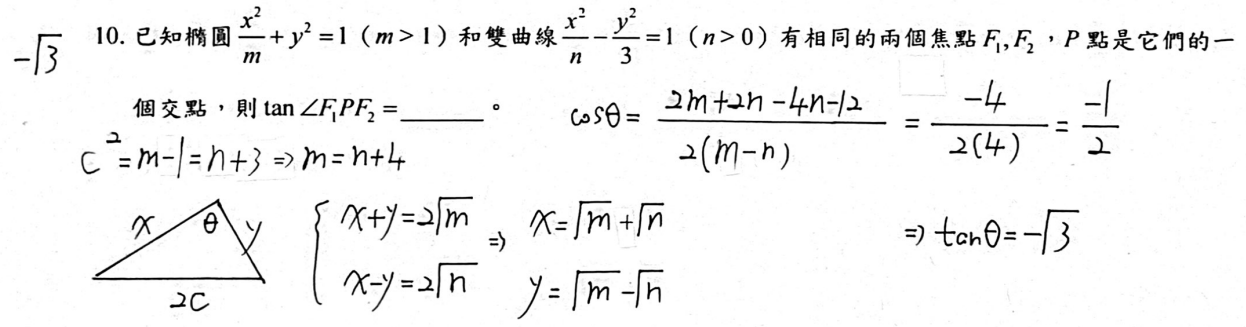 -√3
10. 已知橢圓 x²/m + y² = 1 (m > 1) 和雙曲線 x²/n - y²/3 = 1 (n > 0) 有相同的兩個焦點 F₁, F₂,P 點是它們的一
個交點,則 tan ∠F₁PF₂ = ______。
cosθ = (2m+2n-4n-12)/(2(m-n)) = -4/(2(4)) = -1/2
c² = m-1 = n+3 ⇒ m = n+4
x θ y
2c
{ x+y = 2√m
x-y = 2√n
⇒ x = √m + √n
y = √m - √n
⇒ tanθ = -√3